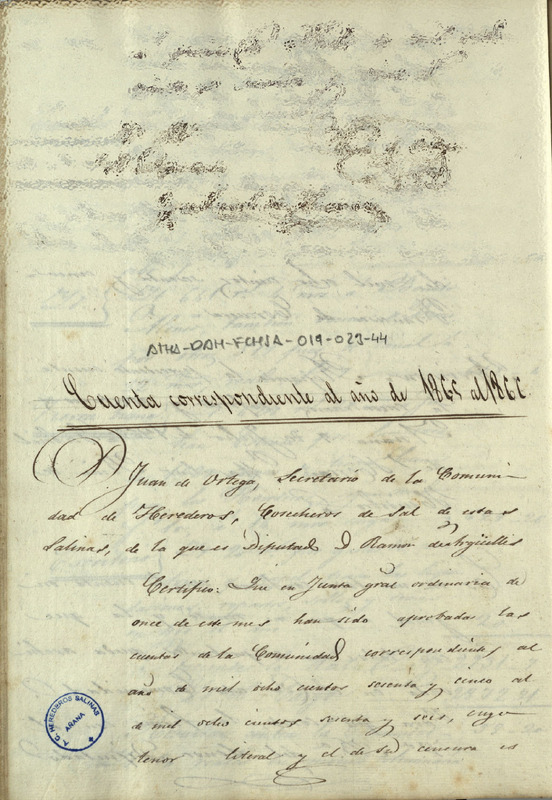 ATHA-DAH-FCHSA-019-023-44
Cuenta correspondiente al año de 1865 al 1866.
D. Juan de Ortega, Secretario de la Comuni-
dad de Herederos, Cosecheros de Sal de estas
Salinas, de la que es Diputado D Ramon de Argüelles
Certifico: Que en Junta gral ordinaria de
once de este mes han sido aprobadas las
cuentas de la Comunidad correspondientes al
año de mil ocho cientos sesenta y cinco al
de mil ocho cientos sesenta y seis, cuyo
tenor literal y el de su censura es
A.C. HEREDEROS SALINAS
AÑANA